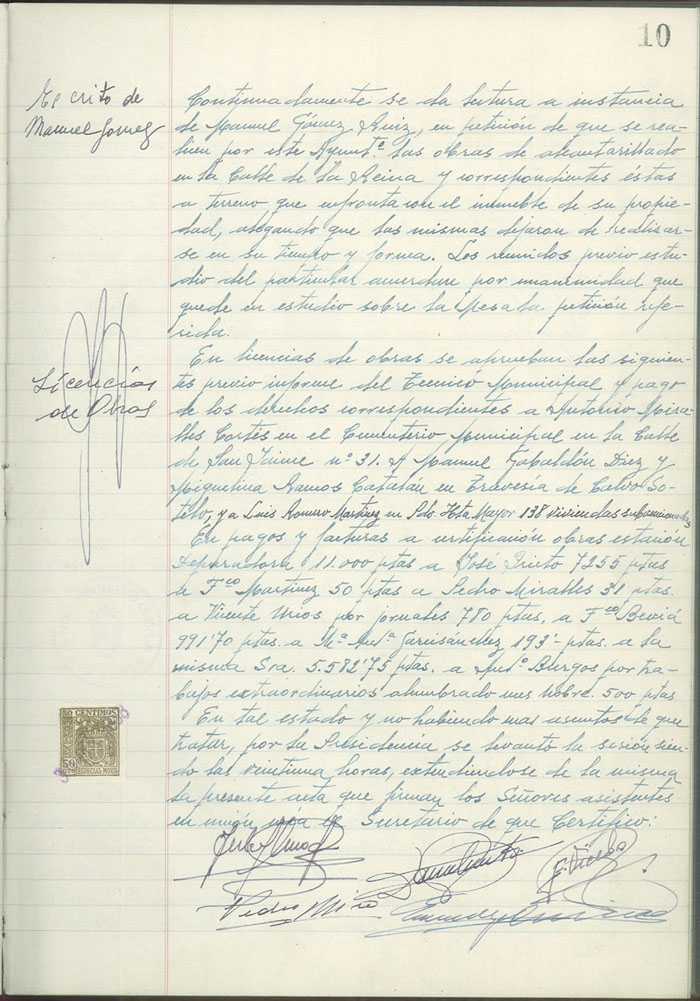 10
Escrito de
Manuel Gomez
Continuadamente se da lectura a instancia
de Manuel Gómez Ruiz, en petición de que se rea-
licen por este Ayuntº. las obras de alcantarillado
en la Calle de la Reina y correspondientes éstas
a terreno que enfronta con el inmueble de su propie-
dad, alegando que las mismas dejaron de realizar-
se en su tiempo y forma. Los reunidos previo estu-
dio del particular acuerdan por unanimidad que
quede en estudio sobre la Mesa la petición refe-
rida.
Licencias
de Obras
En licencias de obras se aprueban las siguien-
tes previo informe del Tecnico Municipal y pago
de los derechos correspondientes a Antonio Mira-
lles Cortés en el Cementerio Municipal en la Calle
de San Jaime nº 31. A Manuel Gabaldón Diez y
Miguelina Ramos Catalán en Travesía de Calvo So-
telo, y a Luis Romero Martinez en Pdo. Hta Mayor 138 viviendas subvencionadas
En pagos y facturas a certificación obras estación
depuradora 11.000 ptas a José Prieto 7255 ptas
a Fco Martinez 50 ptas a Pedro Miralles 31 ptas.
a Vicente Urios por jornales 780 ptas, a Fco Beviá
991'70 ptas. a Mª Antª Garrisánchez 193'- ptas. a la
misma Sra. 5.582'75 ptas. a Antº Burgos por tra-
bajos extraordinarios alumbrado mes Nobre. 500 ptas
En tal estado y no habiendo mas asuntos de que
tratar, por la Presidencia se levantó la sesión sien-
do las veintiuna horas, extendiendose de la misma
la presente acta que firman los Señores asistentes
en unión mia el Secretario de que Certifico:
50 CENTIMOS
50
ESPECIAL MOVIL
Pedro Miró